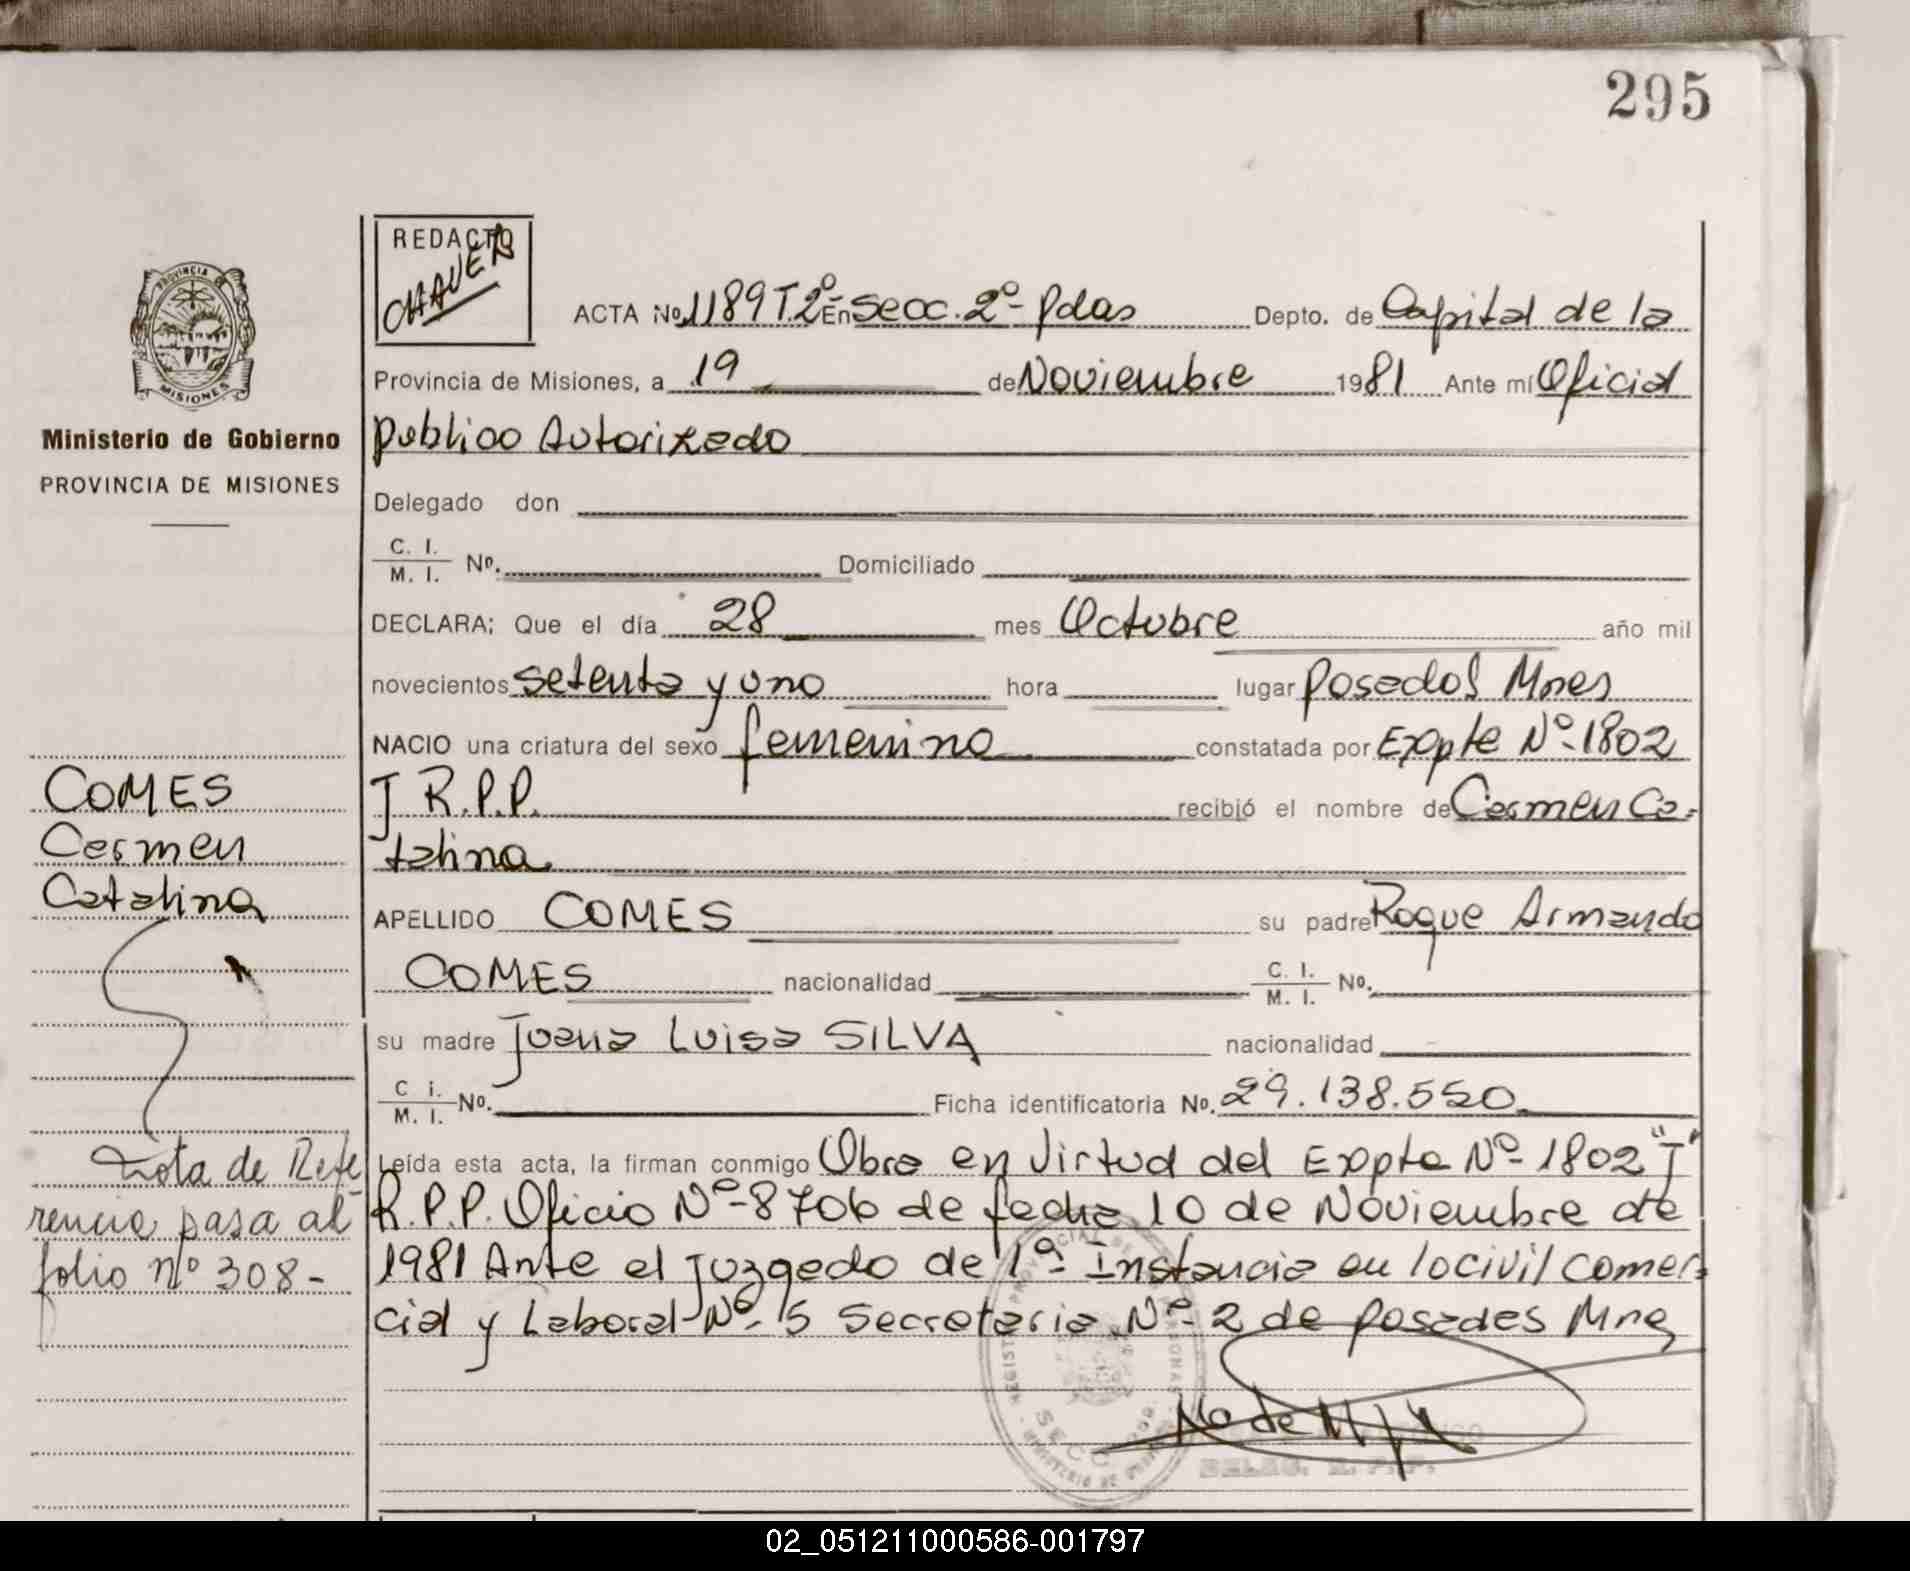 295
REDACTO
CHAVEZ
PROVINCIA
MISIONES
Ministerio de Gobierno
PROVINCIA DE MISIONES
ACTA No. 1189 T. 2º En secc. 2º - Pdas Depto. de Capital de la
Provincia de Misiones, a 19 de Noviembre 1981 Ante mí Oficial
Publico Autorizado
Delegado don
C. I. / M. I. No. Domiciliado
DECLARA; Que el día 28 mes Octubre año mil
novecientos setenta y uno hora lugar Posadas Mnes
NACIO una criatura del sexo femenino constatada por Expte Nº-1802
J R.P.P. recibió el nombre de Carmen Ca-
talina
APELLIDO COMES su padre Roque Armando
COMES nacionalidad C. I. / M. I. No.
su madre Juana Luisa SILVA nacionalidad
C i. / M. I. No. Ficha identificatoria No. 29.138.550
Leída esta acta, la firman conmigo Obra en Virtud del Expte Nº-1802 "J"
R.P.P. Oficio Nº-8706 de fecha 10 de Noviembre de
1981 Ante el Juzgado de 1º- Instancia en lo civil comer-
cial y Laboral Nº- 5 Secretaria Nº- 2 de Posadas Mnes
COMES
Carmen
Catalina
Nota de Refe
rencia pasa al
folio nº 308-
DELEG. R. P. P.
02_051211000586-001797